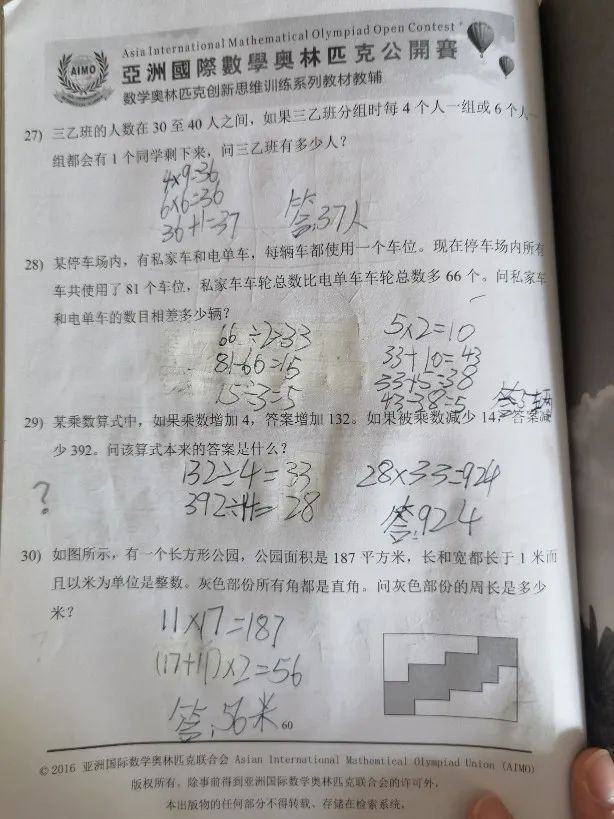 Asia International Mathematical Olympiad Open Contest
AIMO
亞洲國際數學奧林匹克公開賽
数学奥林匹克创新思维训练系列教材教辅
27) 三乙班的人数在 30 至 40 人之间，如果三乙班分组时每 4 个人一组或 6 个人一
组都会有 1 个同学剩下来，问三乙班有多少人？
4×9=36
6×6=36
36+1=37
答:37人
28) 某停车场内，有私家车和电单车，每辆车都使用一个车位。现在停车场内所有
车共使用了 81 个车位，私家车车轮总数比电单车车轮总数多 66 个。问私家车
和电单车的数目相差多少辆？
66÷2=33
81-66=15
15÷3=5
5×2=10
33+10=43
33+5=38
43-38=5
答5辆
29) 某乘数算式中，如果乘数增加 4，答案增加 132。如果被乘数减少 14，答案减
少 392。问该算式本来的答案是什么？
132÷4=33
392÷14=28
28×33=924
答:924
?
30) 如图所示，有一个长方形公园，公园面积是 187 平方米，长和宽都长于 1 米而
且以米为单位是整数。灰色部份所有角都是直角。问灰色部份的周长是多少
米？
11×17=187
(17+11)×2=56
答:56米
60
© 2016 亚洲国际数学奥林匹克联合会 Asian International Mathmetical Olympiad Union (AIMO)
版权所有。除事前得到亚洲国际数学奥林匹克联合会的许可外，
本出版物的任何部分不得转载、存储在检索系统，